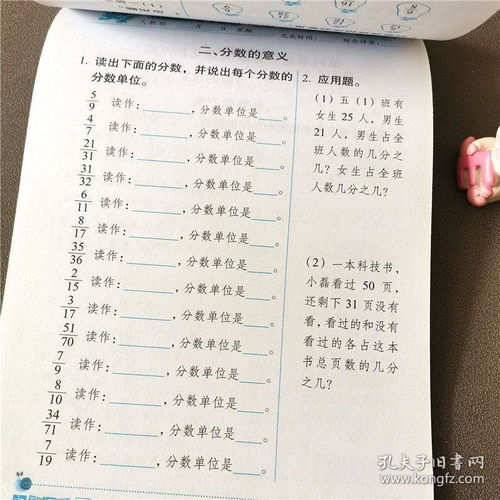 人教版 月 日 星期 完成时间: 综合评价:
二、分数的意义
1. 读出下面的分数，并说出每个分数的
分数单位。
5/9 读作:______，分数单位是___。
4/7 读作:______，分数单位是___。
21/31 读作:______，分数单位是___。
31/32 读作:______，分数单位是___。
6/11 读作:______，分数单位是___。
8/17 读作:______，分数单位是___。
35/36 读作:______，分数单位是___。
2/15 读作:______，分数单位是___。
3/17 读作:______，分数单位是___。
51/70 读作:______，分数单位是___。
7/9 读作:______，分数单位是___。
8/10 读作:______，分数单位是___。
34/71 读作:______，分数单位是___。
7/19 读作:______，分数单位是___。
2. 应用题。
(1) 五 (1) 班有
女生 25 人，男生
21 人，男生占全
班人数的几分之
几? 女生占全班
人数几分之几?
(2) 一本科技书，
小磊看过 50 页，
还剩下 31 页没有
看，看过的和没有
看过的各占这本
书总页数的几分
之几?
孔夫子旧书网